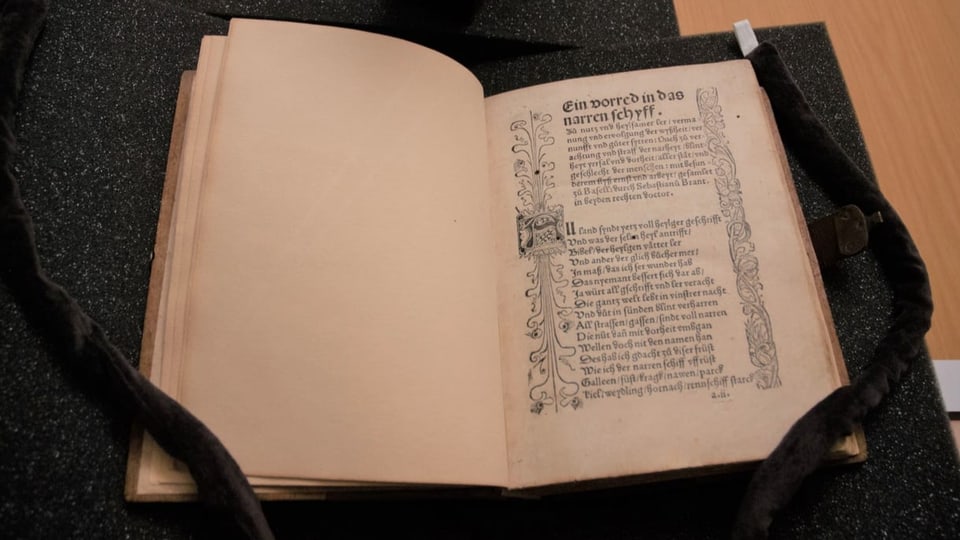 Ein vorred in das
narren schyff.
Zů nutz vnd heylsamer ler / verma
nung vnd ervolgung der wyßheit / ver
nunfft vnd gůter sytten: Ouch zů ver-
achtung vnd straff der narheyt / blint-
heyt yrrsal vnd dorheit / aller stät / vnd
geschlecht der menschen: mit besun-
derem flyß ernst vnd arbeyt / gesamlet
zů Basell: durch Sebastianū Brant.
in beyden rechten doctor.
All land syndt yetz voll heylger geschrifft
Vnd was der selen heyl antrifft /
Bibel / der heylgen vätter ler
Vnd ander der glich bücher mer /
In maß / das ich ser wunder hab
Das nyemant bessert sich dar ab /
Ja würt all gschrifft vnd ler veracht
Die gantz welt lebt in vinstrer nacht
Vnd důt in sünden blint verharren
All strassen / gassen / sindt voll narren
Die nüt dañ mit dorheit vmbgan
Wellen doch nit den namen han
Des hab ich gdacht zů diser früst
Wie ich der narren schiff vff rüst
Galleen / füst / kragk / nawen / parck
Kiel / weydling / hornach / rennschiff starck
a.ii.